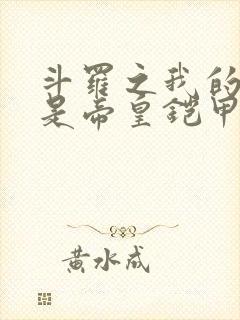 斗罗之我的
是帝皇铠甲
黄水成